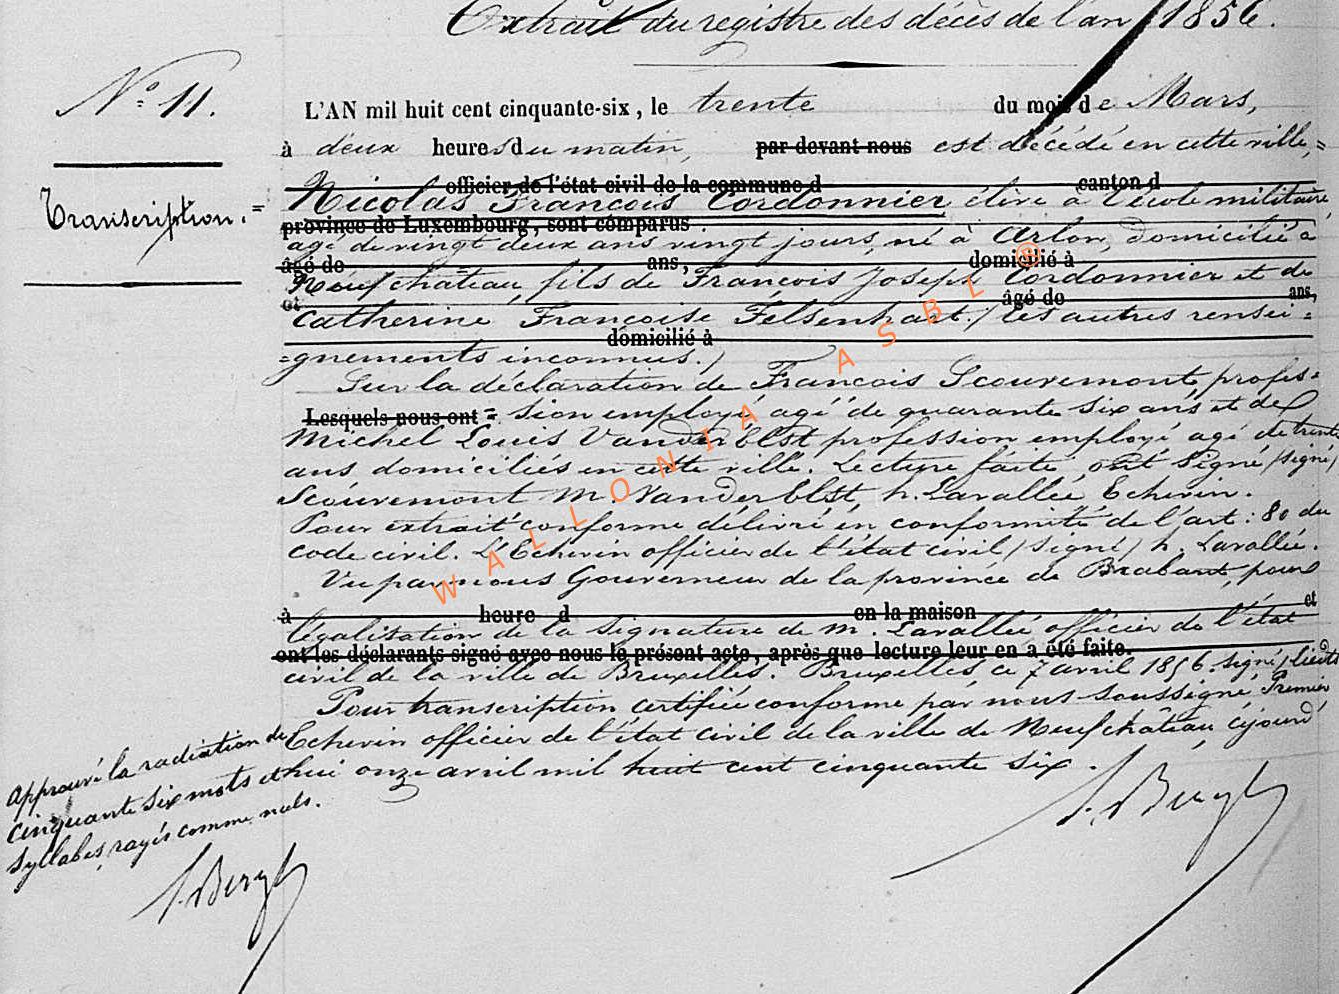 Extrait du registre des décès de l'an 1856.
N° 11.
L'AN mil huit cent cinquante-six, le trente du mois de Mars,
à deux heures du matin, par devant nous est décédé en cette ville,=
officier de l'état civil de la commune d canton d
Transcription.
=Nicolas François Cordonnier élève à l'école militaire
province de Luxembourg, sont comparus
agé de vingt deux ans vingt jours, né à Arlon, domicilié à
âgé de ans, domicilié à
Neufchâteau, fils de François Joseph Cordonnier et de
et âgé de ans,
Catherine Françoise Felsenhart. (les autres rensei=
domicilié à
=gnements inconnus.)
Sur la déclaration de François Scouvemont, profes=
Lesquels nous ont = sion employé, agé de quarante six ans et de
Michel Louis VanderElst profession employé agé de trente
ans domiciliés en cette ville. Lecture faite, ont signé (signé)
Scouvemont M. VanderElst, h. Lavallée Echevin.
Pour extrait conforme délivré en conformité de l'art: 80 du
code civil. L'Echevin officier de l'état civil (signé) h. Lavallée.
Vu par nous Gouverneur de la province de Brabant, pour
à heure d en la maison et
légalisation de la signature de M. Lavallée officier de l'état
ont les déclarants signé avec nous le présent acte, après que lecture leur en a été faite.
civil de la ville de Bruxelles. Bruxelles, ce 7 avril 1856. signé) Liedts
Pour transcription certifiée conforme par nous soussigné Premier
Echevin officier de l'état civil de la ville de Neufchâteau, cejourd'
hui onze avril mil huit cent cinquante six.
Approuvé la radiation de
cinquante six mots et
syllabes rayés comme nuls.
WALLONIA ASBL ®